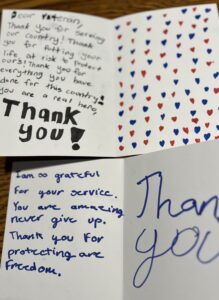 Dear Veteran,
Thank you for serving
our country! Thank
you for putting your
life at risk to protect
ours! Thank you for
everything you have
done for this country!
you are a real hero,
Thank
you!
I am so grateful
For your service.
You are amazing
never give up.
Thank you For
protecting are
Freedom.
Than
you